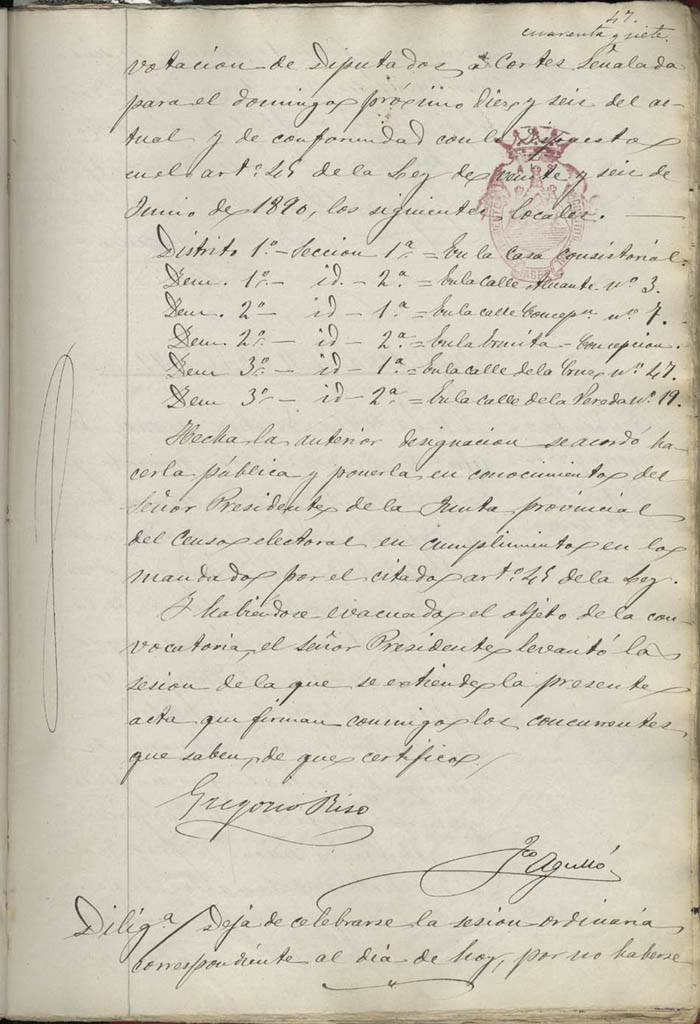 47.
cuarenta y siete.
votacion de Diputados á Cortes señalada
para el domingo próximo diez y seis del ac-
tual y de conformidad con lo dispuesto
en el artº. 45 de la Ley de veinte y seis de
Junio de 1890, los siguientes locales. —
Distrito 1º. - Seccion 1ª = En la Casa Consistorial.
Dem. 1º. - id. - 2ª = En la calle Alicante nº. 3.
Dem. 2º - id - 1ª = En la calle Concepn. nº. 7.
Dem. 2º. - id - 2ª = En la Ermita - Concepcion.
Dem 3º. - id - 1ª = En la calle de la Cruz nº. 47.
Dem 3º. - id - 2ª = En la calle de la Vereda nº. 19.
Hecha la anterior designacion se acordó ha-
cerla pública y ponerla en conocimiento del
Señor Presidente de la Junta provincial
del Censo electoral en cumplimiento en lo
mandado por el citado artº. 45 de la Ley.
Y habiéndose evacuado el objeto de la con-
vocatoria, el señor Presidente levantó la
sesion de la que se extiende la presente
acta que firman conmigo los concurrentes
que saben, de que certifico.
Gregorio Riso
Fco Agulló
Diligª / Deja de celebrarse la sesion ordinaria
correspondiente al dia de hoy, por no haberse